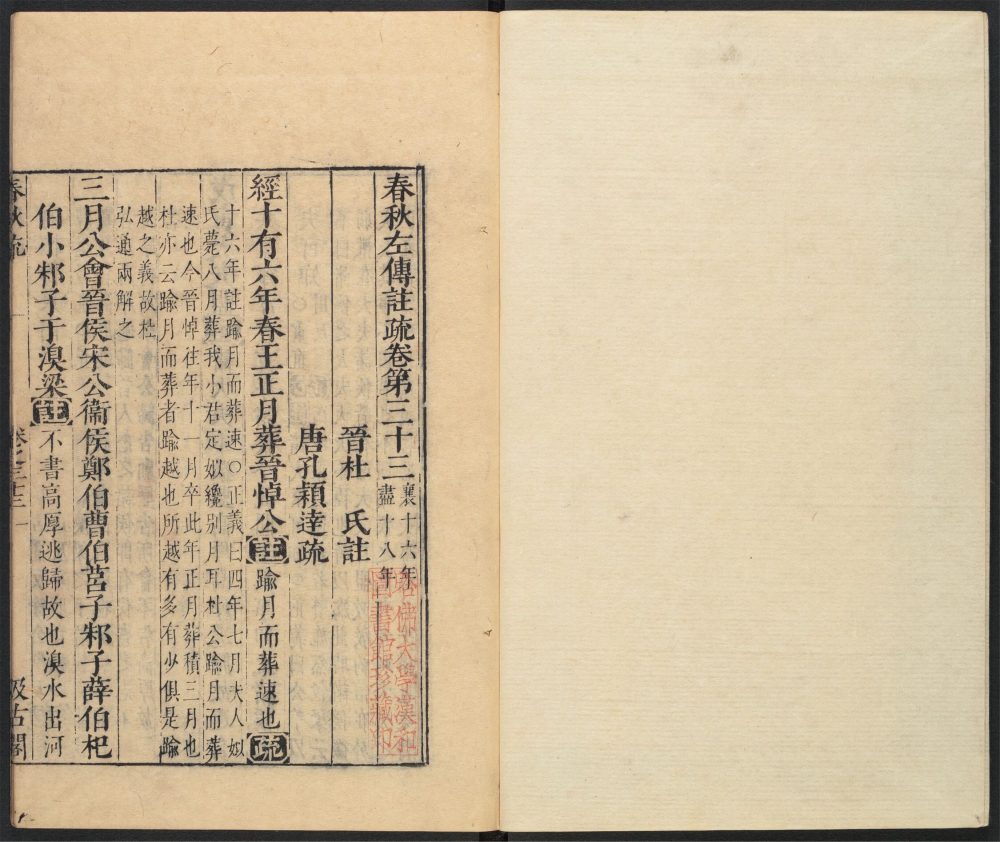 春秋左傳註疏卷第三十三
襄十六年
盡十八年
晉杜 氏註
唐孔穎達疏
經十有六年春王正月葬晉悼公註踰月而葬速也疏
十六年註踰月而葬速○正義曰四年七月夫人姒
氏薨八月葬我小君定姒纔別月耳杜公踰月而葬
速也今晉悼往年十一月卒此年正月葬積三月也
杜亦云踰月而葬者踰越也所越有多有少俱是踰
越之義故杜
弘通兩解之
三月公會晉侯宋公衞侯鄭伯曹伯莒子邾子薛伯杞
伯小邾子于溴梁註不書高厚逃歸故也溴水出河
春秋疏 卷之三十三 一 汲古閣
哈佛大學漢和
圖書館珍藏印